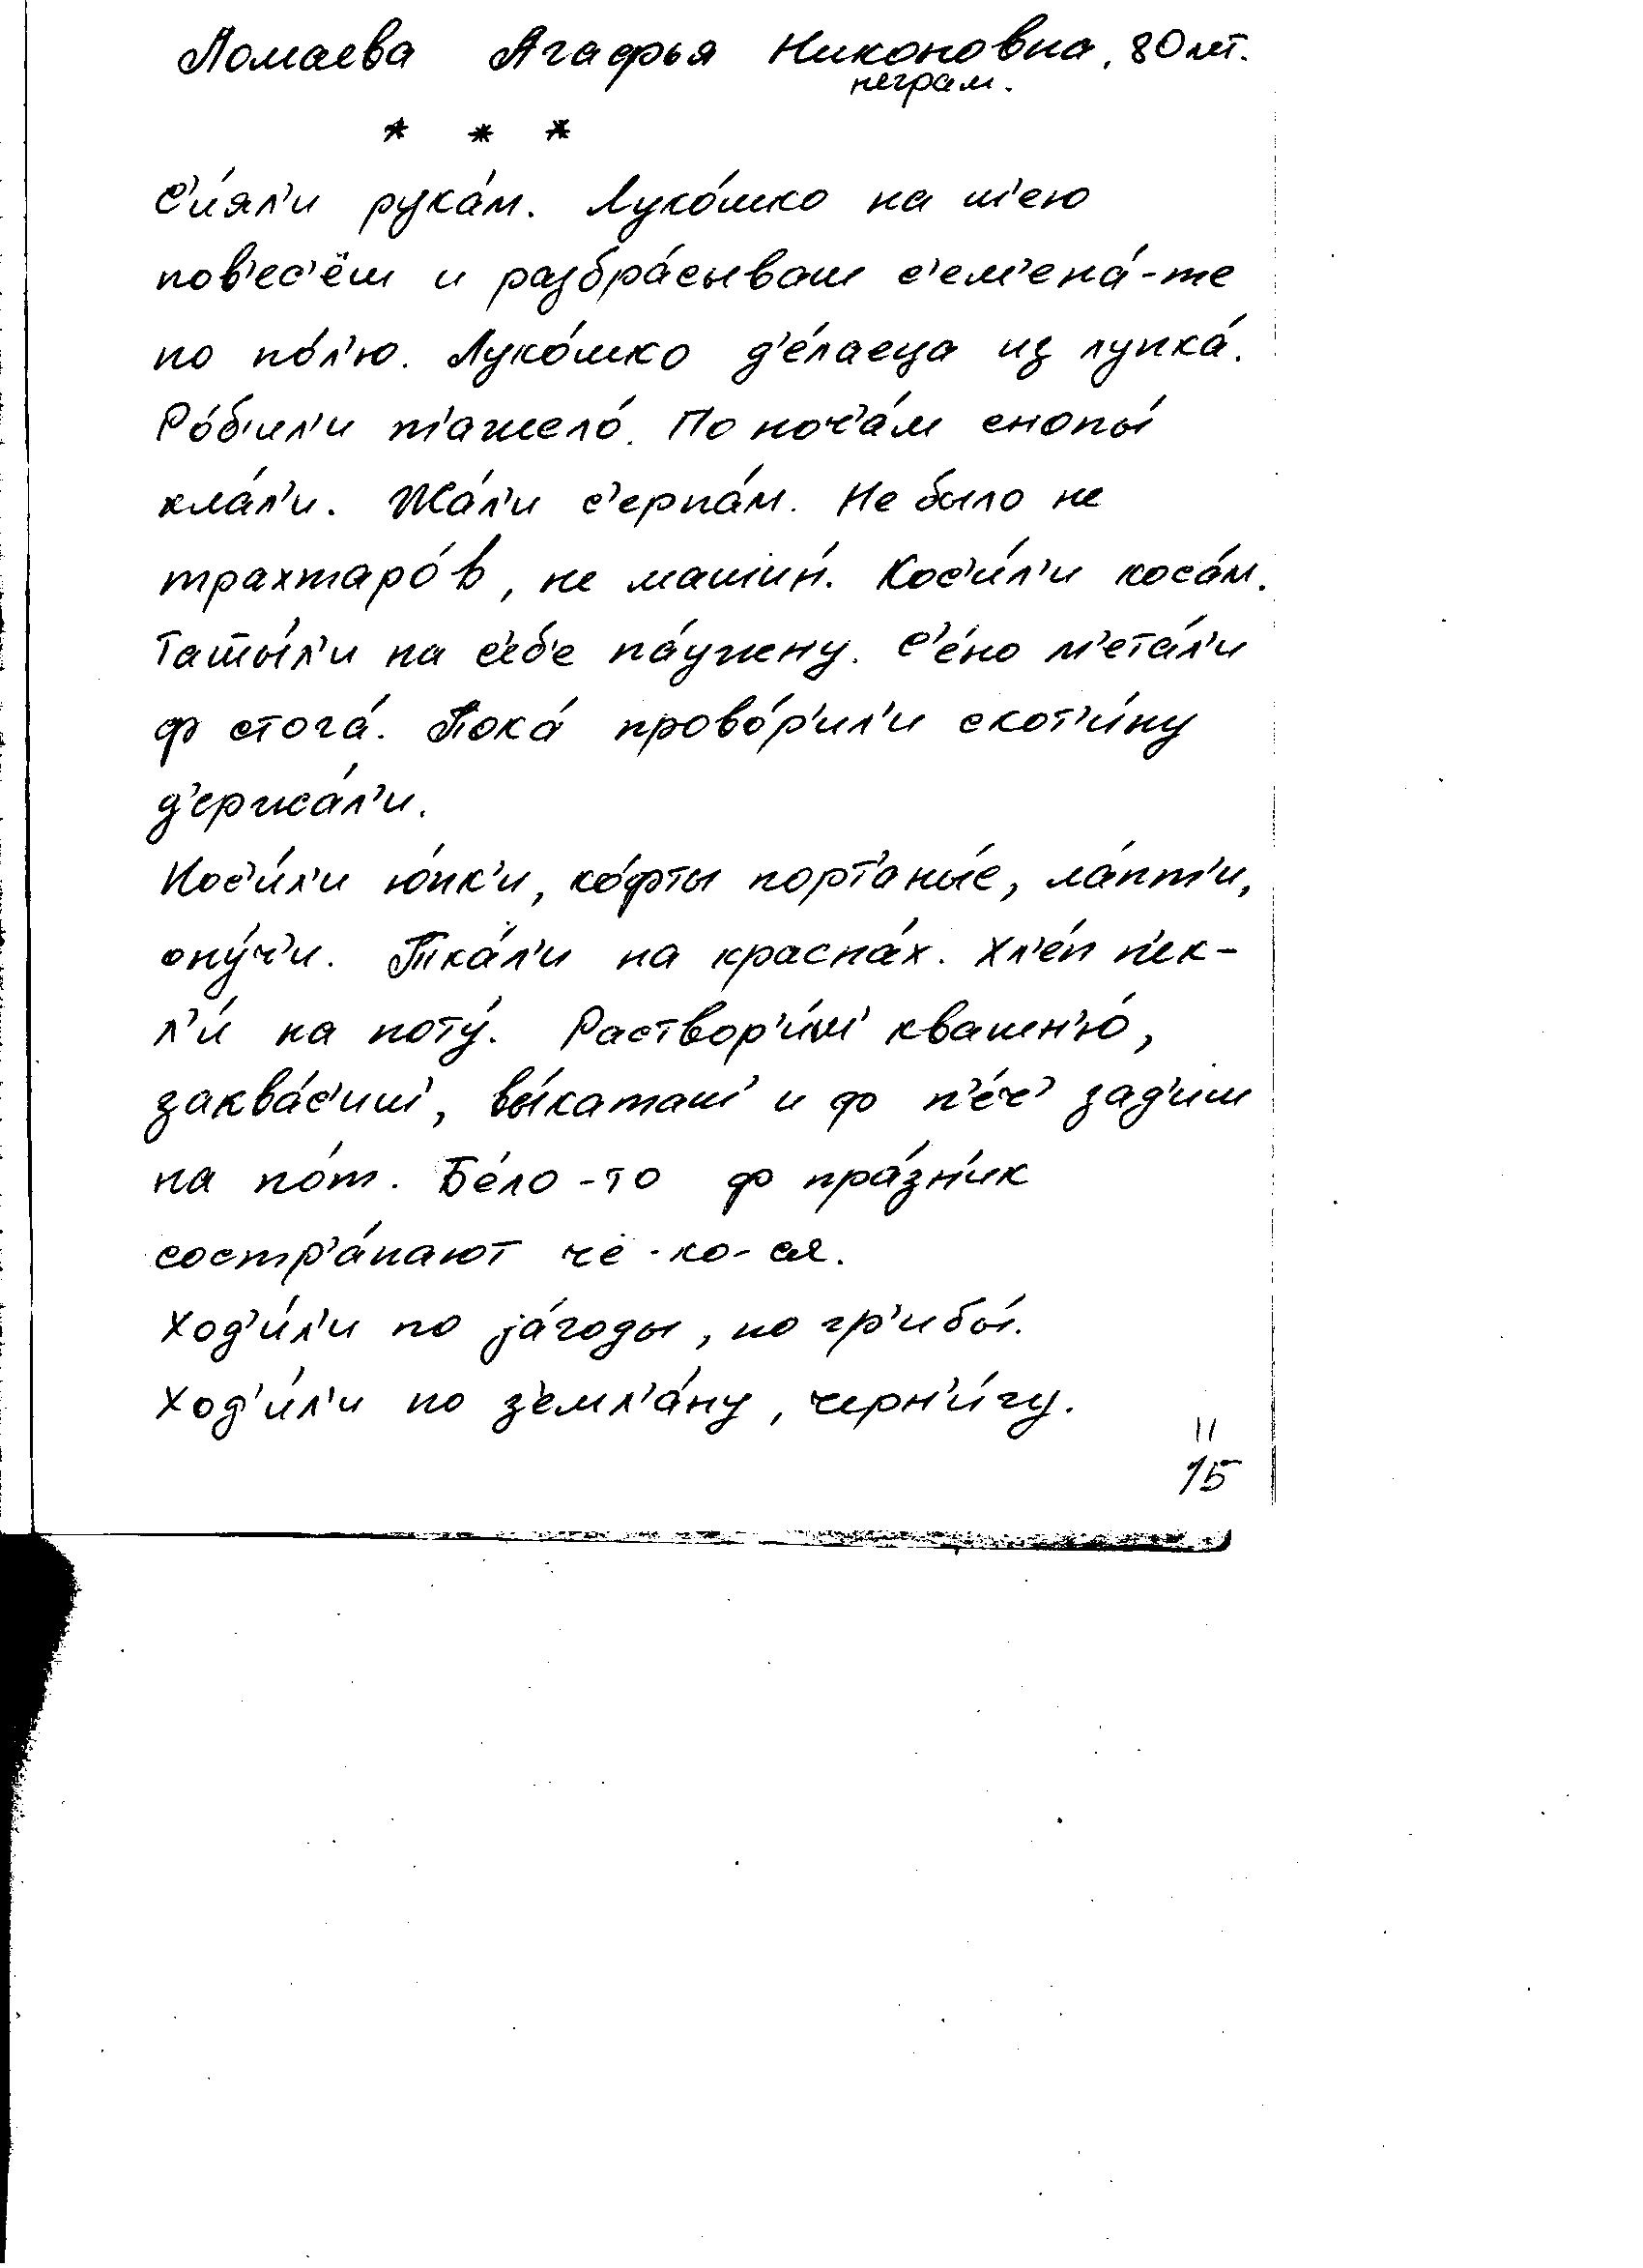 Ломаева Агафья Никоновна, 80 лет.
неграм.
* * *
С'и́ял'и рука́м. Луко́шко на ш'ею
пов'ес'ёш и разбра́сываш с'ем'ена́-те
по по́л'ю. Луко́шко д'е́лаеца из лупка́.
Ро́б'ил'и т'ажело́. По ноч'а́м снопы́
кла́л'и. Жа́л'и с'ерпа́м. Не было не
трахтаро́в, не маши́н. Кос'и́л'и коса́м.
Таты́л'и на с'еб'е па́ужену. С'е́но м'ета́л'и
ф стога́. Пока́ прово́р'ил'и скот'и́ну
д'ержа́л'и.
Нос'и́л'и ю́пк'и, ко́фты порт'аны́е, ла́пт'и,
ону́ч'и. Тка́л'и на красна́х. Хл'е́п п'ек-
л'и́ на поту́. Раствор'и́ш' квашн'ю́,
заква́с'иш', вы́каташ' и ф п'е́ч' зад'иш
на по́т. Бе́ло-то ф пра́зн'ик
состр'а́пают че-ко-ся.
Ход'и́л'и по jа́годы, по гр'ибы́.
Ход'и́л'и по з'емл'а́ну, черн'и́гу.
11
15